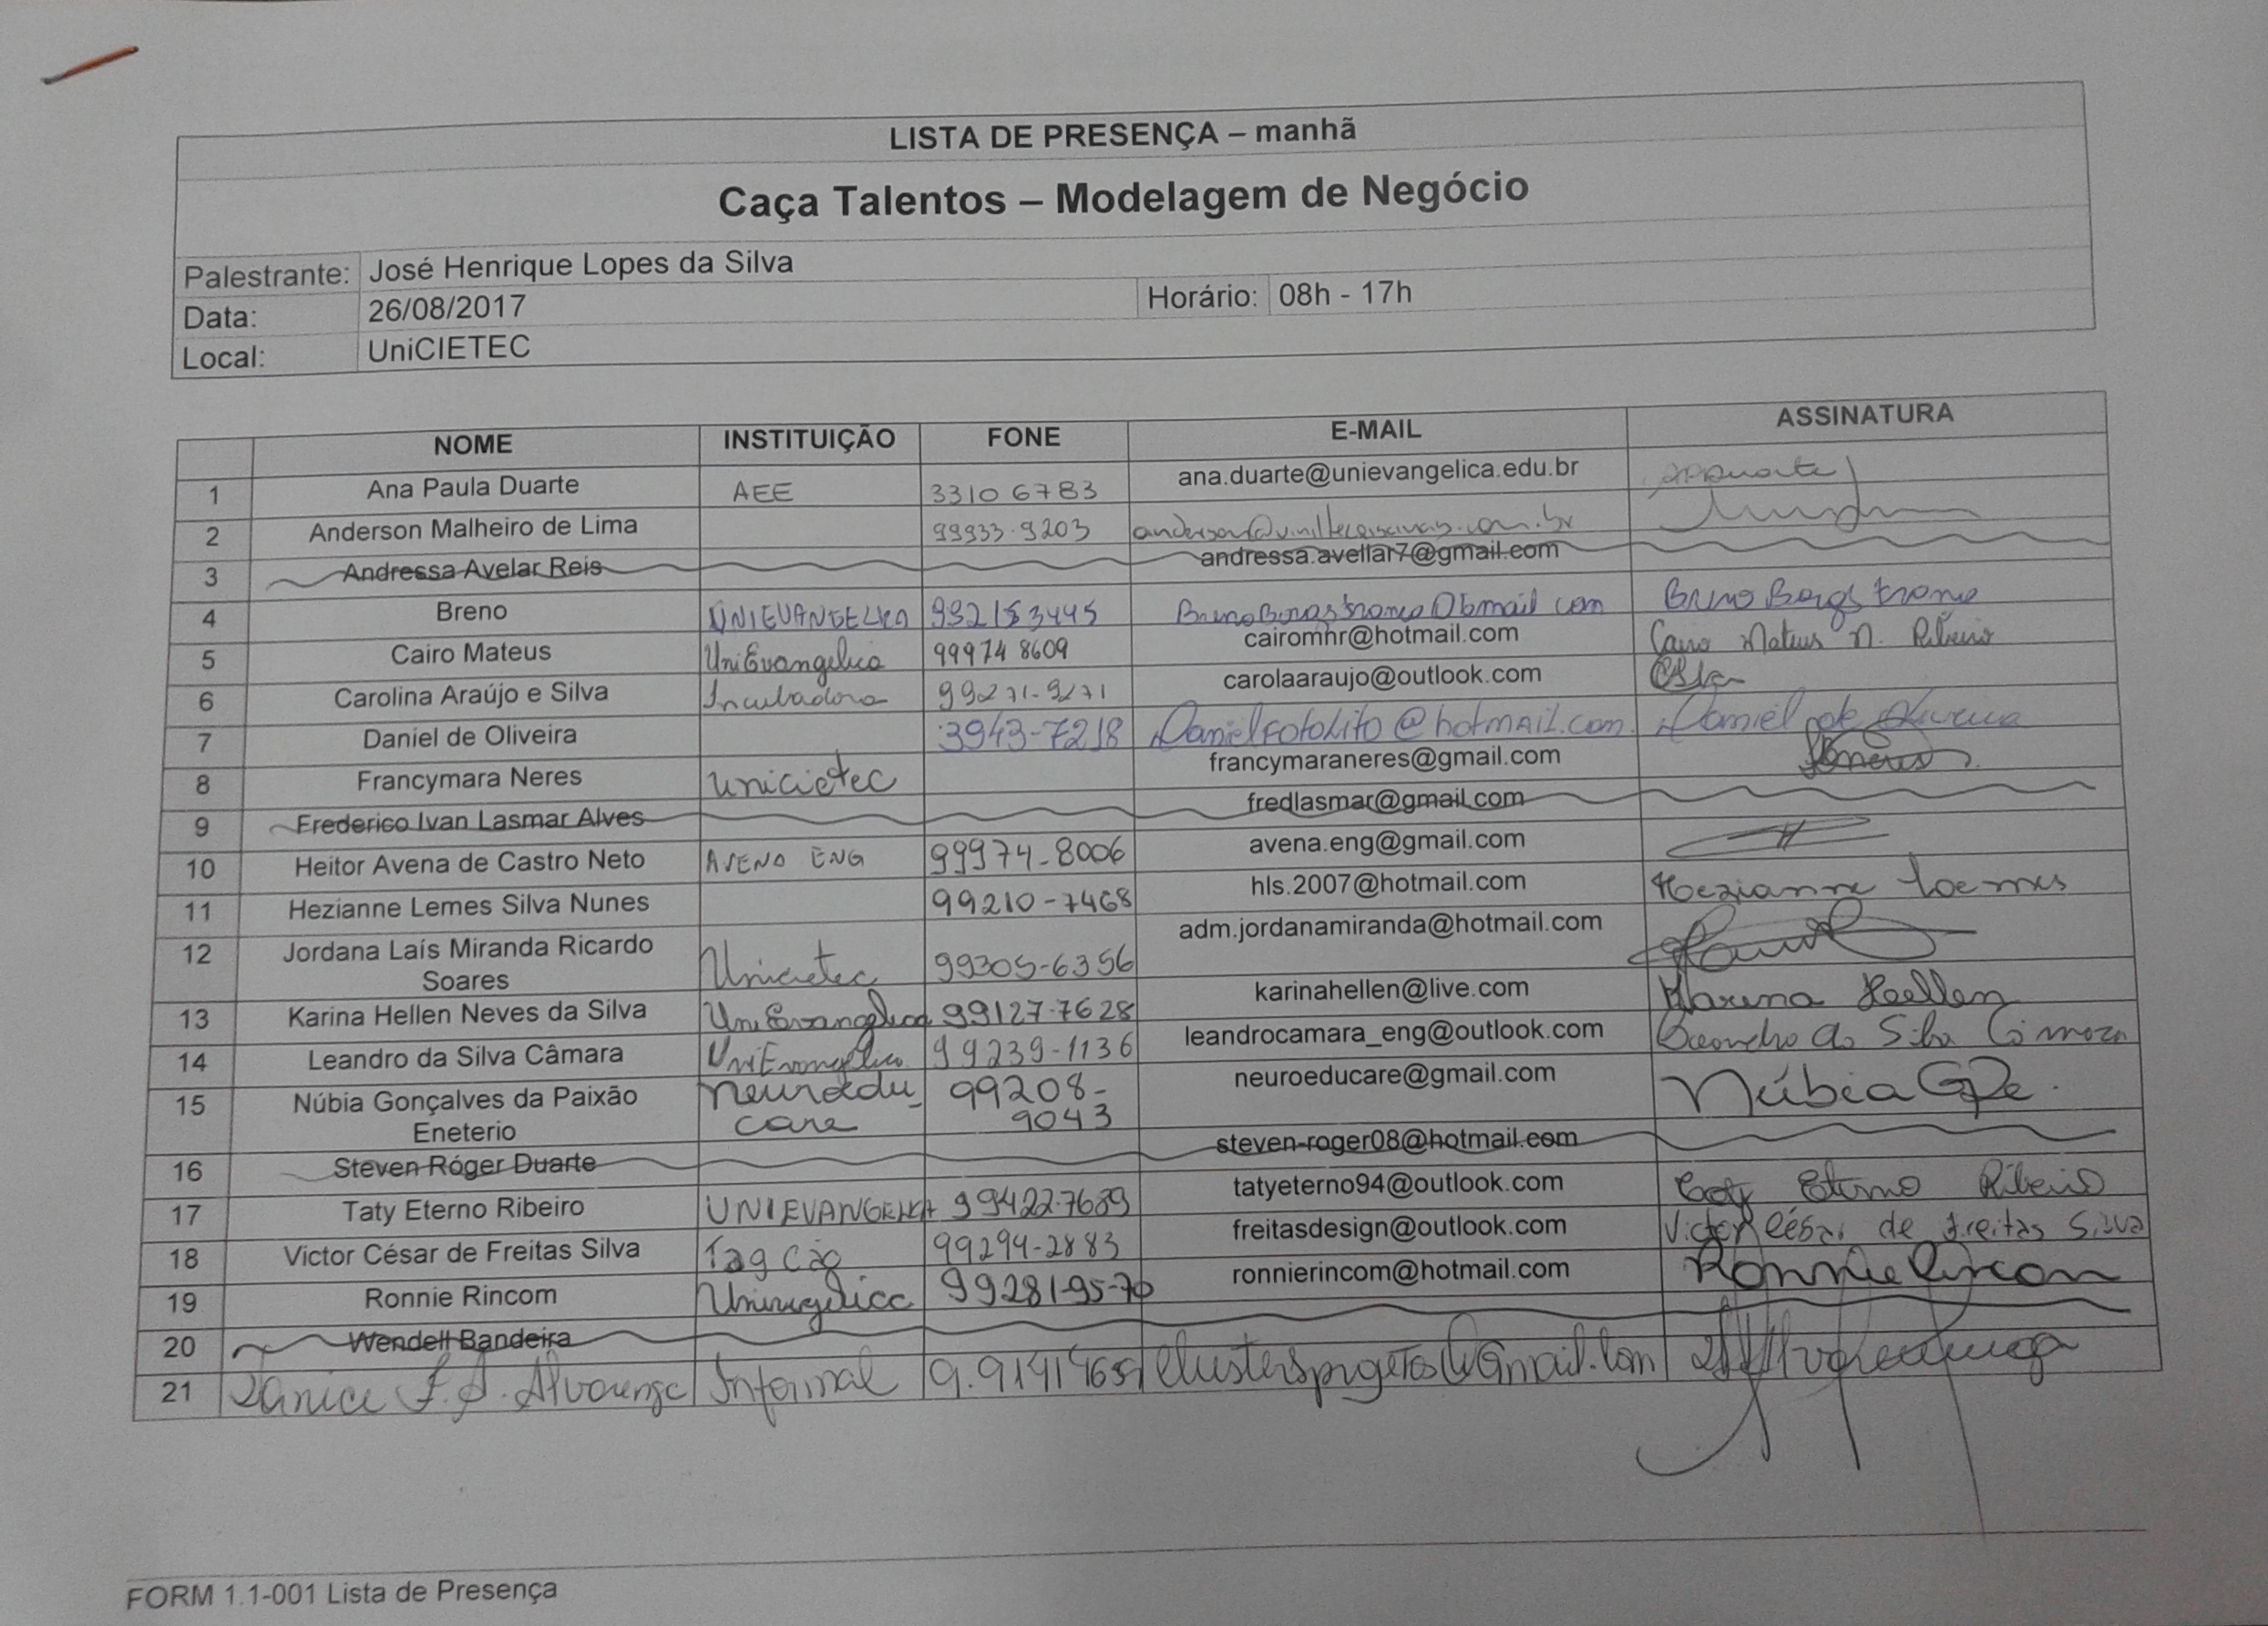 LISTA DE PRESENÇA – manhã
Caça Talentos – Modelagem de Negócio
Palestrante: José Henrique Lopes da Silva
Data: 26/08/2017 Horário: 08h - 17h
Local: UniCIETEC
NOME INSTITUIÇÃO FONE E-MAIL ASSINATURA
1 Ana Paula Duarte AEE 3310 6783 ana.duarte@unievangelica.edu.br
2 Anderson Malheiro de Lima 99933-9203
3 Andressa Avelar Reis andressa.avellar7@gmail.com
4 Breno UNIEVANGELICA 992153445
5 Cairo Mateus UniEvangelica 99974 8609 cairomhr@hotmail.com Cairo Mateus N. Ribeiro
6 Carolina Araújo e Silva Incubadora 99271-9271 carolaaraujo@outlook.com
7 Daniel de Oliveira 3943-7218 Danielfotolito@hotmail.com Daniel de Oliveira
8 Francymara Neres unicietec francymaraneres@gmail.com
9 Frederico Ivan Lasmar Alves fredlasmar@gmail.com
10 Heitor Avena de Castro Neto AVENA ENG 99974-8006 avena.eng@gmail.com
11 Hezianne Lemes Silva Nunes 99210-7468 hls.2007@hotmail.com Hezianne Lemes
12 Jordana Laís Miranda Ricardo Soares Unicietec 99305-6356 adm.jordanamiranda@hotmail.com
13 Karina Hellen Neves da Silva UniEvangelica 99127-7628 karinahellen@live.com Karina Hellen
14 Leandro da Silva Câmara UniEvangelica 99239-1136 leandrocamara_eng@outlook.com Leandro da Silva Câmara
15 Núbia Gonçalves da Paixão Eneterio neuroeducare 99208-9043 neuroeducare@gmail.com Núbia GPE.
16 Steven Róger Duarte steven-roger08@hotmail.com
17 Taty Eterno Ribeiro UNIEVANGELICA 99422-7689 tatyeterno94@outlook.com Taty Eterno Ribeiro
18 Victor César de Freitas Silva Tag Cão 99294-2883 freitasdesign@outlook.com Victor César de Freitas Silva
19 Ronnie Rincom 99281-95-70 ronnierincom@hotmail.com Ronnie Rincon
20 Wendell Bandeira
21 Alvarenga Informal
FORM 1.1-001 Lista de Presença